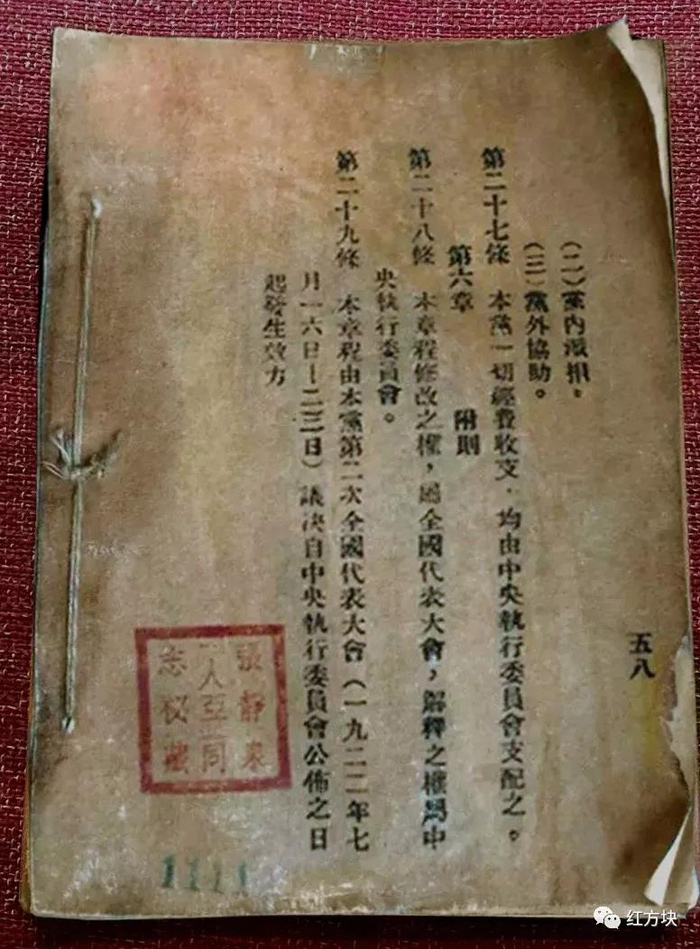 五八
(二)黨內派捐。
(三)黨外協助。
第二十七條　本黨一切經費收支，均由中央執行委員會支配之。
第六章　附則
第二十八條　本章程修改之權，屬全國代表大會，解釋之權屬中
央執行委員會。
第二十九條　本章程由本黨第二次全國代表大會（一九二二年七
月一六日—二三日）議決自中央執行委員會公佈之日
起發生效方
張靜泉
(人亞)同
志秘藏
1111
红方块